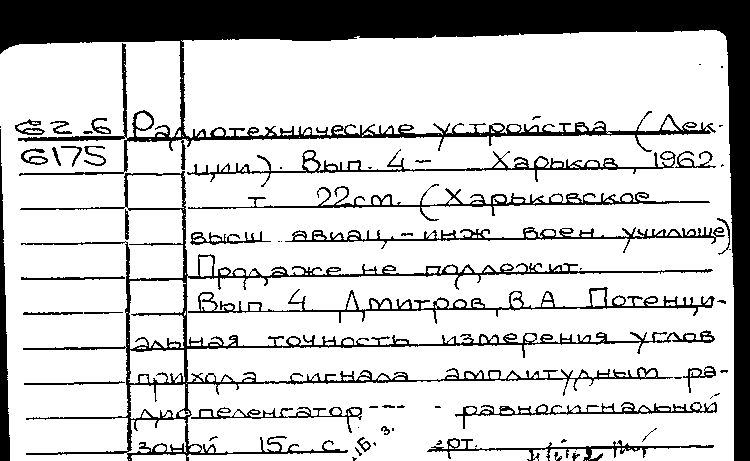 62-6 Радиотехнические устройства (Лек-
6175 ции). Вып. 4- Харьков, 1962.
т. 22см. (Харьковское
высш авиац.-инж воен. училище)
Продаже не подлежит.
Вып. 4 Дмитров, В.А. Потенци-
альная точность измерения углов
прихода сигнала амплитудным ра-
диопеленгатор --- - равносигнальной
зоной. 15с. с